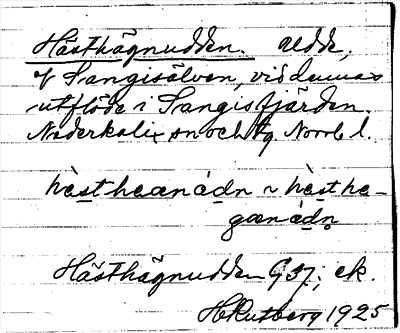 Hästhägnudden. udde,
af Sangisälven, vid dennas
utflöde i Sangisfjärden.
Nederkalix sn och tg Norrb l.
hèsthæⁿádn ~ hèsthe-
gænádn
Hästhägnudden G 37; ek.
H Rutberg 1925